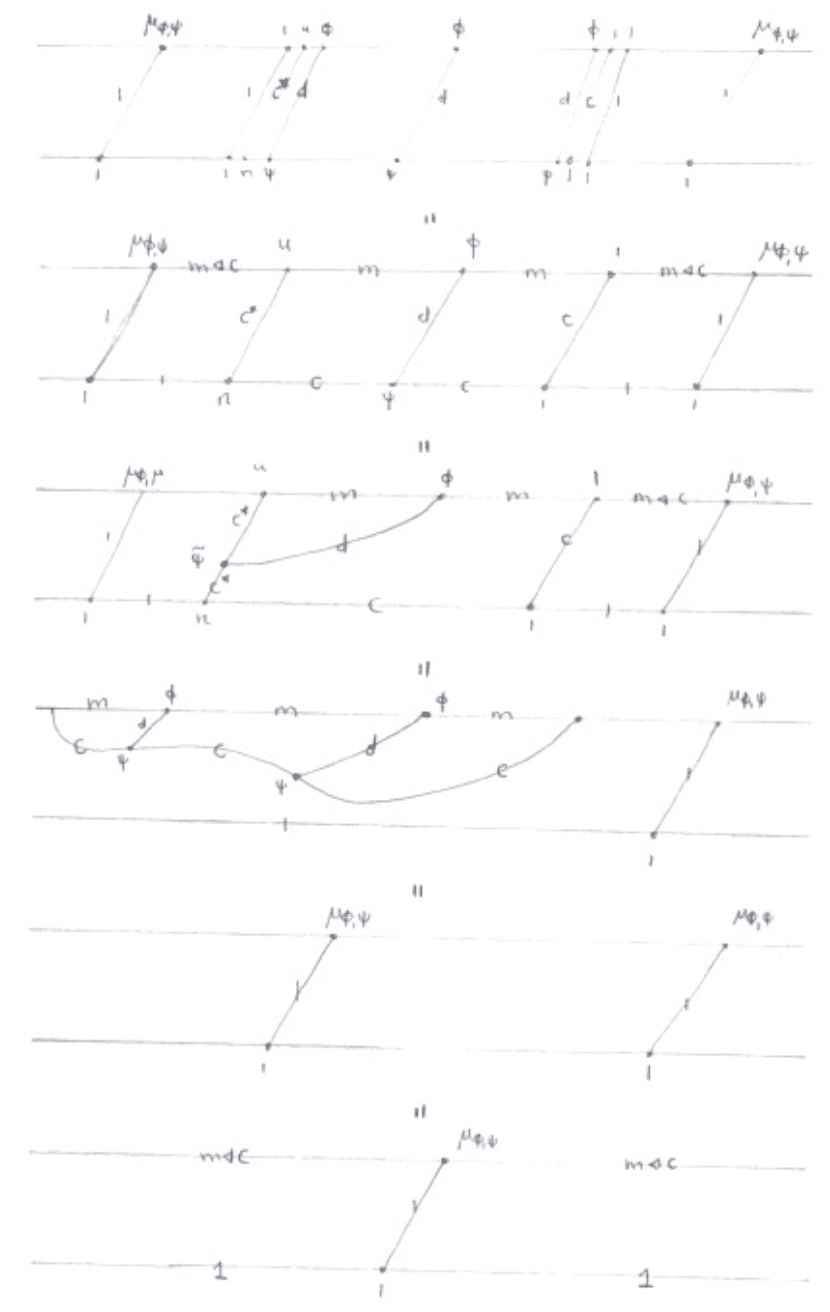 μφ,ψ 1 u φ φ φ 1 1 μφ,ψ
1 1 c* d d d c 1 1
1 1 n ψ 1 1
"
μφ,ψ m◁c u m φ m 1 m◁c μφ,ψ
1 c* d c 1
1 1 n c ψ c 1 1 1
"
μφ,μ u m φ m 1 m◁c μφ,ψ
1 c* d c 1
c*
1 1 n c 1 1 1
"
m φ m φ m μφ,ψ
c d c d
ψ ψ c 1
1 1
"
μφ,ψ μφ,φ
1 1
1 1
"
m◁c μφ,ψ m◁c
1
1 1 1